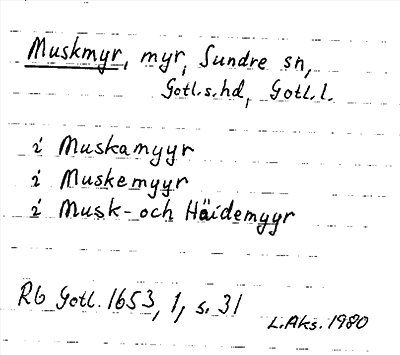 Muskmyr, myr, Sundre sn,
Gotl.s.hd, Gotl.l.
i Muskamyyr
i Muskemyyr
i Musk- och Häidemyyr
Rb Gotl. 1653, 1, s. 31
L.Aks. 1980